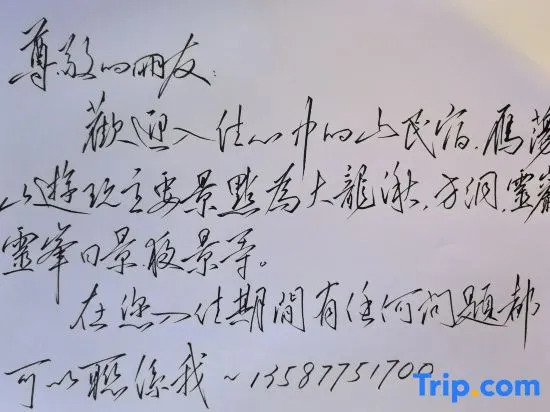 尊敬的朋友:
歡迎入住心中的山民宿.雁蕩
山遊玩主要景點為大龍湫.方洞.靈巖
靈峯日景夜景等。
在您入住期間有任何问題都
可以聯係我~13587751700
Trip.com